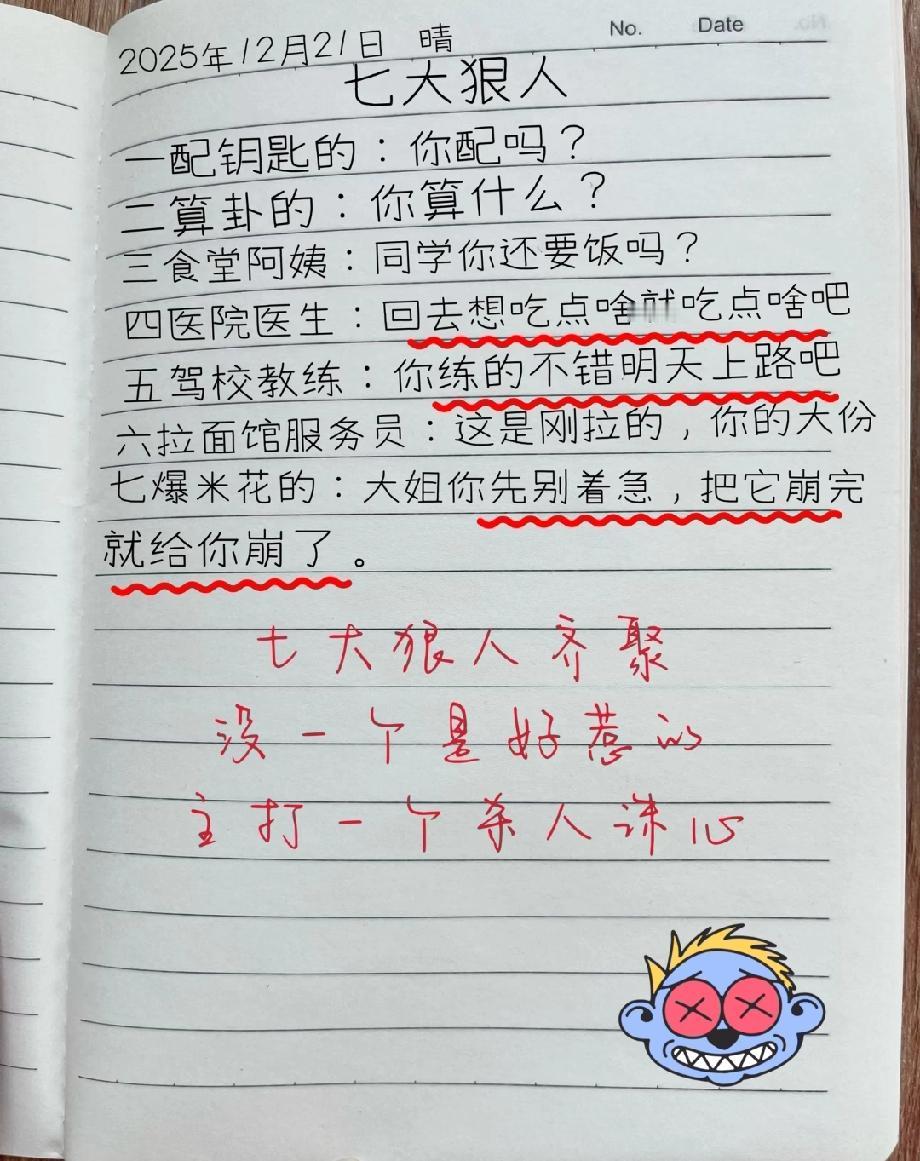 No. Date
2025年12月21日 晴
七大狠人
一配钥匙的：你配吗？
二算卦的：你算什么？
三食堂阿姨：同学你还要饭吗？
四医院医生：回去想吃点啥就吃点啥吧
五驾校教练：你练的不错明天上路吧
六拉面馆服务员：这是刚拉的，你的大份
七爆米花的：大姐你先别着急，把它崩完
就给你崩了。
七大狠人齐聚
没一个是好惹的
主打一个杀人诛心